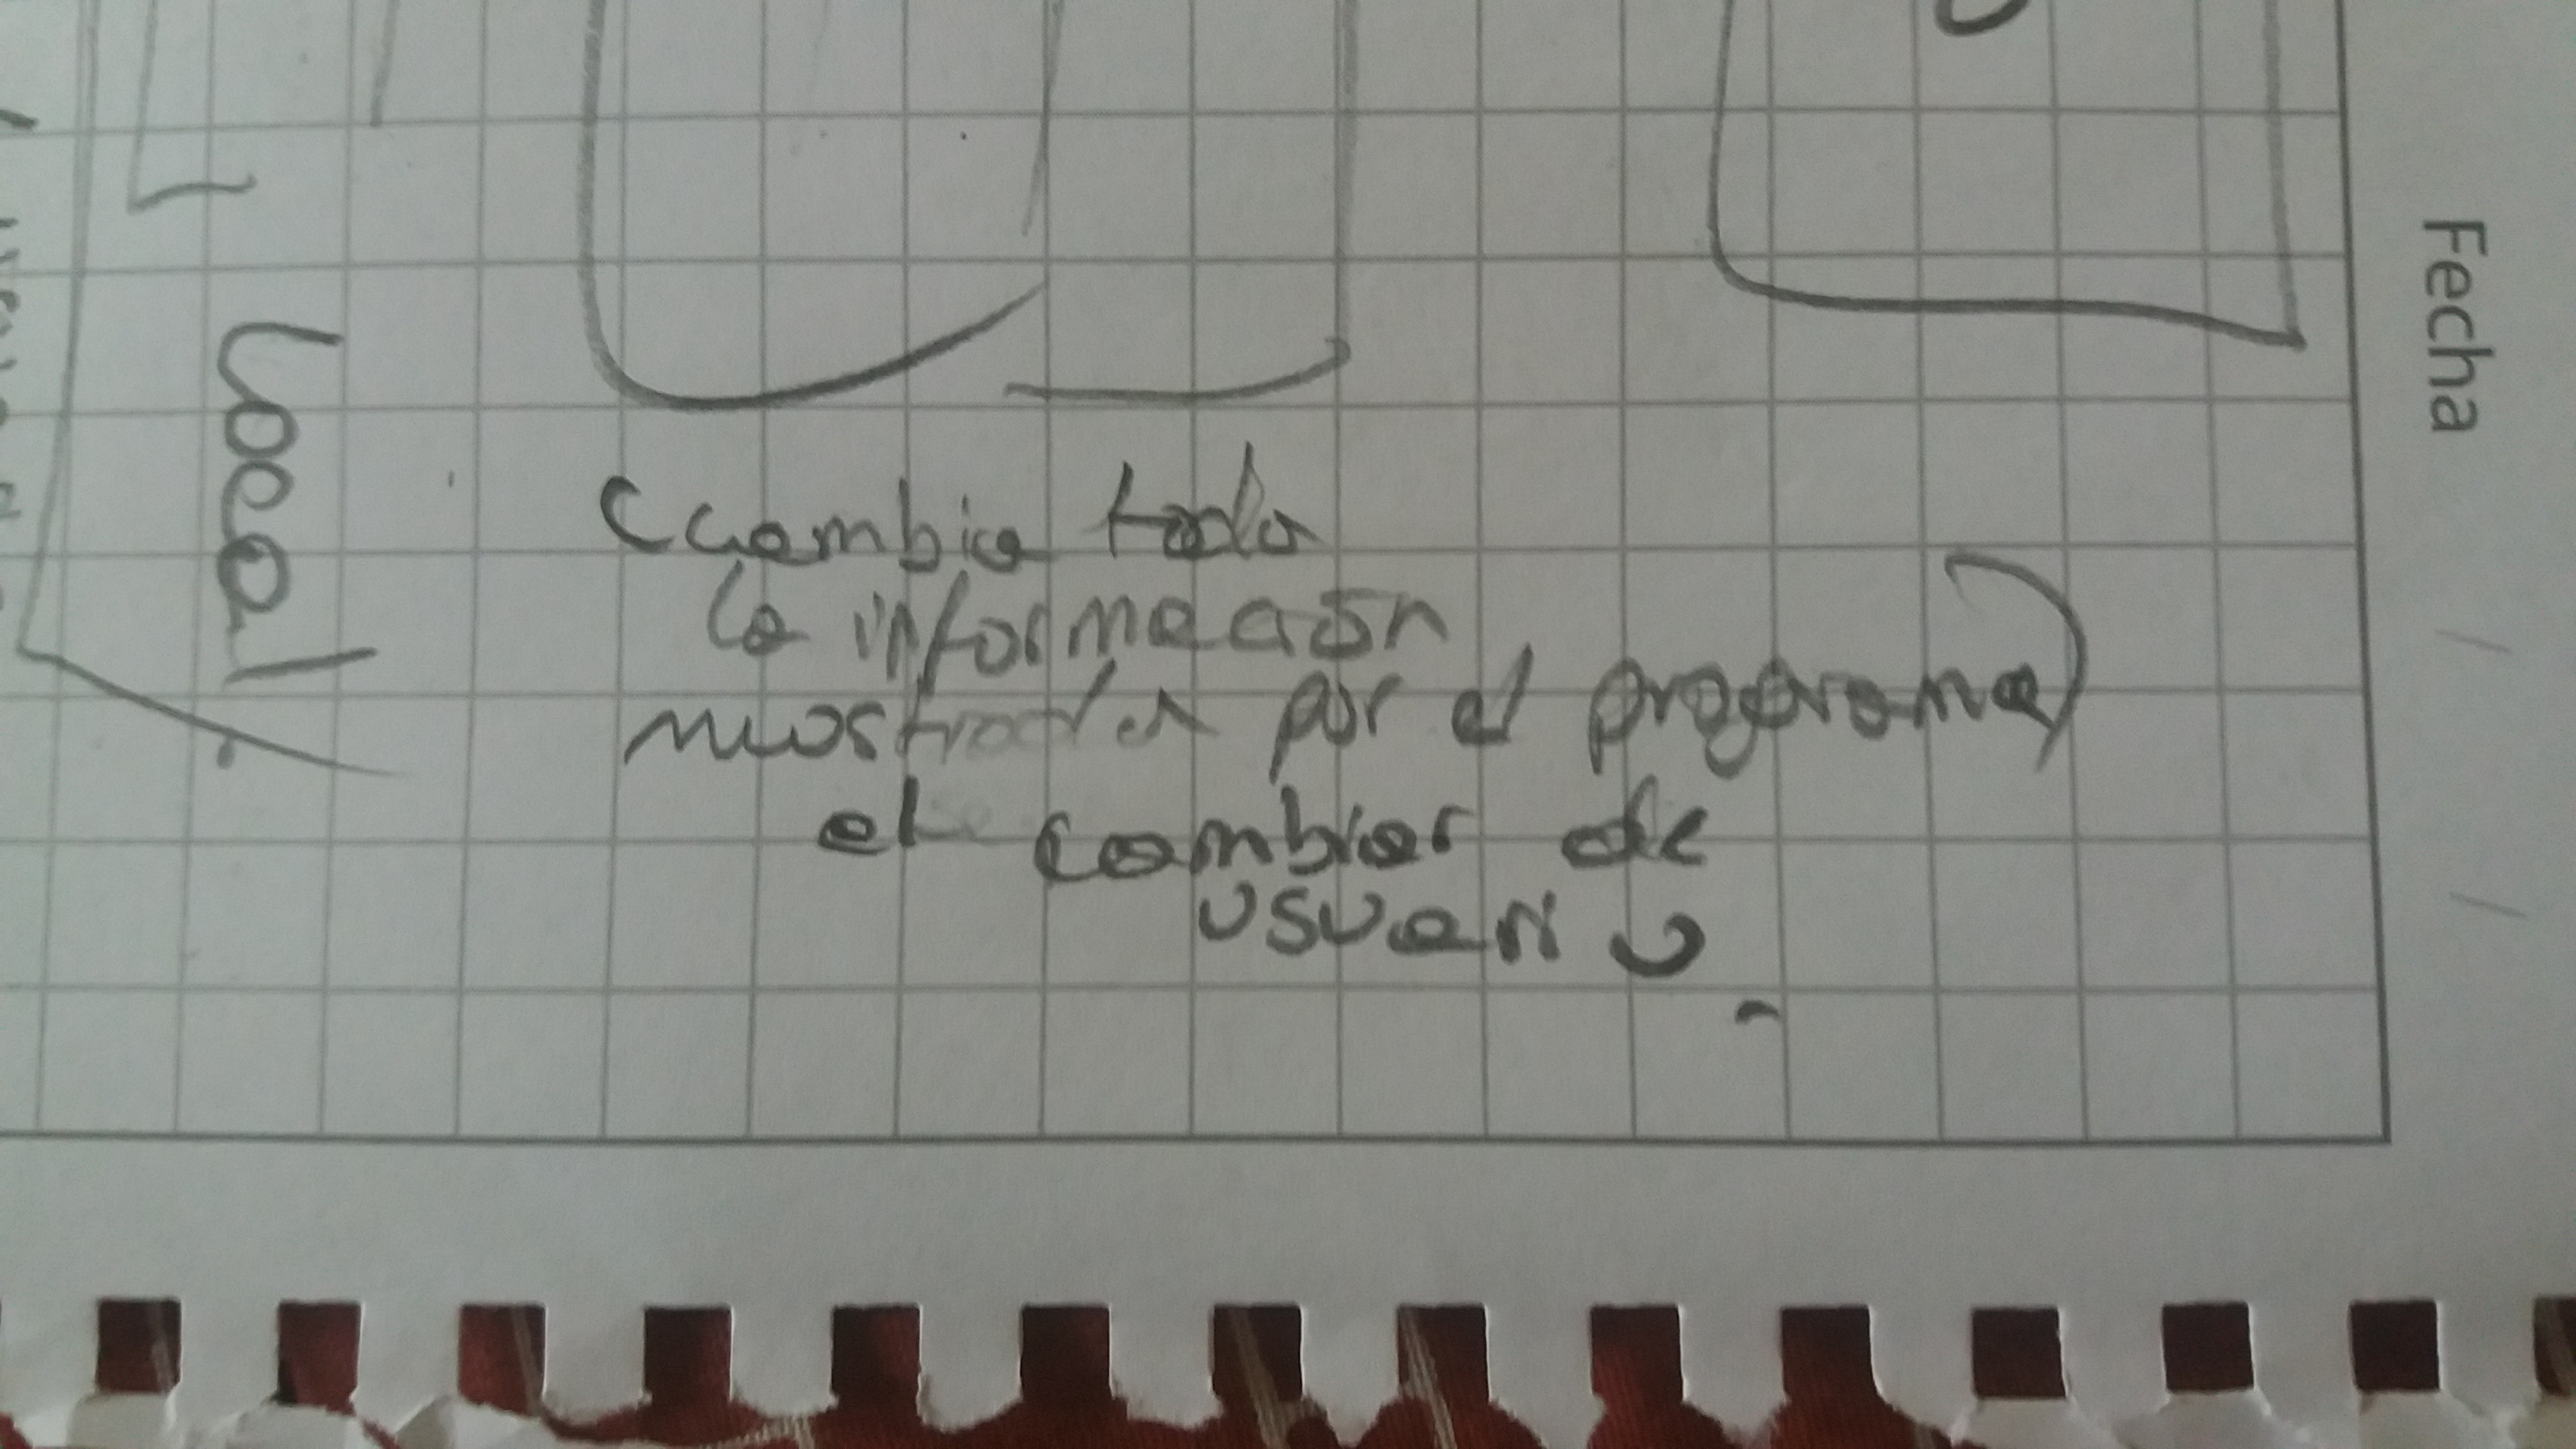 Fecha
Local
(cambia toda
la información
mostrada por el programa)
al cambiar de
usuario